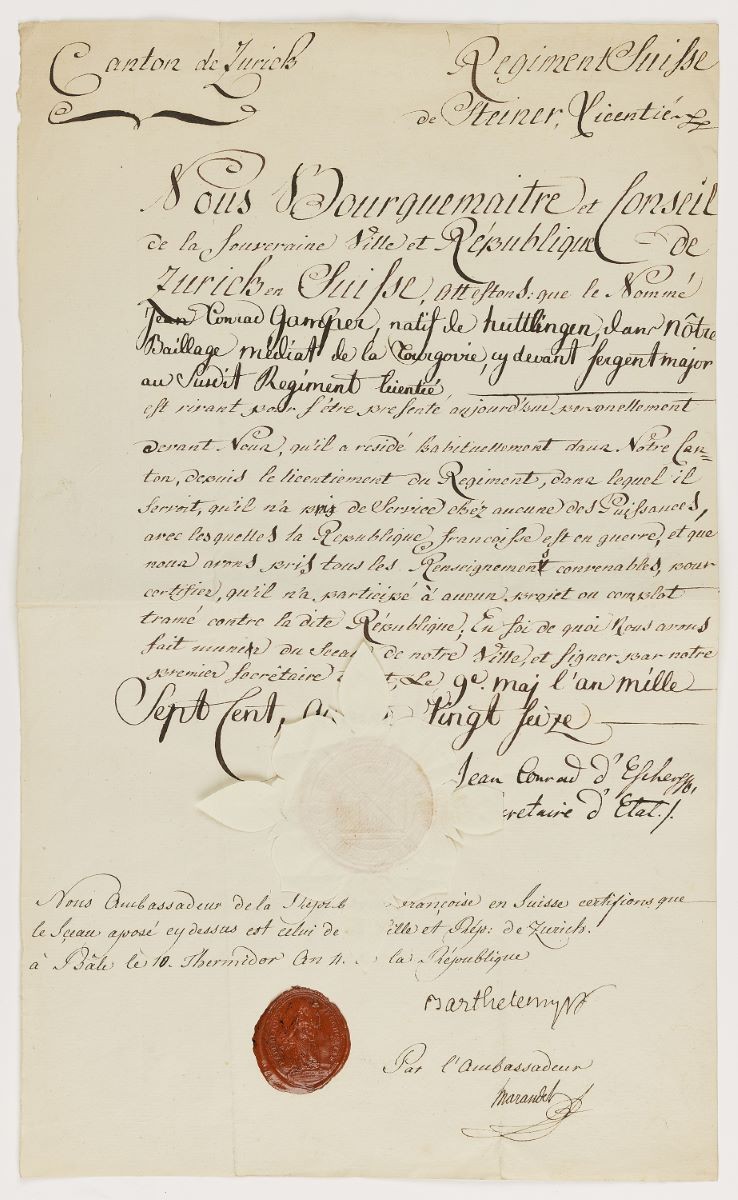 Canton de Zurich
Regiment Suisse
de Steiner, Licentié
Nous Bourguemaitre et Conseil
de la Souveraine Ville et République de
Zurick en Suisse, attestons: que le Nommé
Jean Conrad Gamper, natif de huttlingen, dans nôtre
Baillage médiat de la Tourgovie, cy devant sergent major
au Susdit Regiment licentié
est virant pour s'être presenté aujourd'hui personellement
devant Nous, qu'il a residé habituellement dans Notre Can-
ton, depuis le licentiement du Regiment, dans lequel il
servoit, qu'il n'a pris de Service chéz aucune des Puissances,
avec lesquelles la République françoisse est en guerre, et que
nous avons pris tous les Renseignements convenables, pour
certifier, qu'il n'a participé à aucun projet ou complot
tramé contre la dite République; En foi de quoi Nous avons
fait munir du Sceau de notre Ville, et signer par notre
premier secrétaire Le 9e. maj l'an mille
Sept Cent, Vingt seize
Jean Conrad d'Escher
cretaire d'Etat.
Nous Ambassadeur de la Répub françoise en Suisse certifions que
le Sçeau aposé cy dessus est celui de ille et Rép: de Zurich.
à Bâle le 10. Thermidor An 4. la République
Barthelemy
Par l'Ambassadeur
Marandet